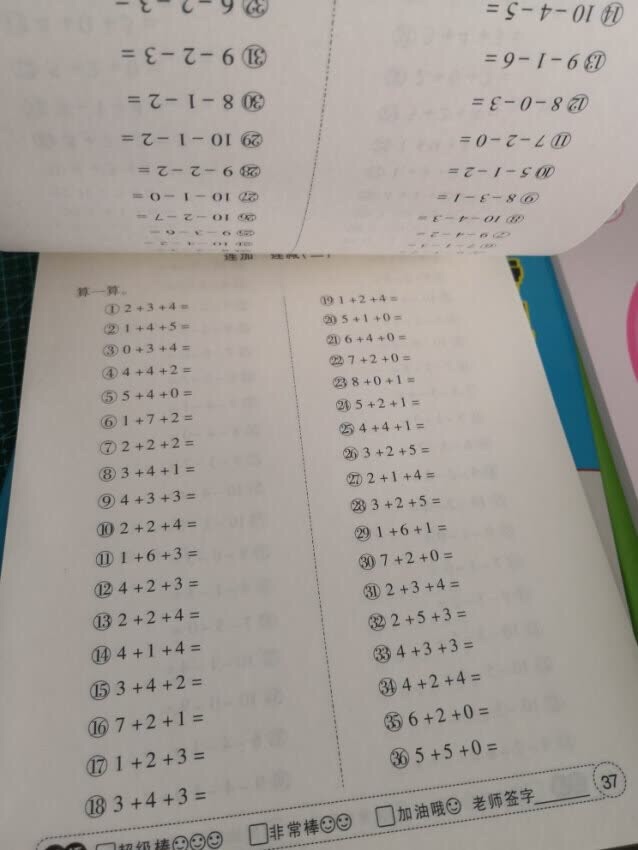 ⑭ 10 - 4 - 5 =
⑬ 9 - 1 - 6 =
⑫ 8 - 0 - 3 =
⑪ 7 - 2 - 0 =
⑩ 5 - 1 - 2 =
⑨ 8 - 3 - 1 =
⑧ 10 - 4 - 3 =
⑦ 9 - 4 - 2 =
㉜ 6 - 2 - 3 =
㉛ 9 - 2 - 3 =
㉚ 8 - 1 - 2 =
㉙ 10 - 1 - 2 =
㉘ 9 - 2 - 2 =
㉗ 10 - 1 - 0 =
㉖ 10 - 2 - 7 =
㉕ 9 - 3 - 6 =
算一算。
① 2 + 3 + 4 =
② 1 + 4 + 5 =
③ 0 + 3 + 4 =
④ 4 + 4 + 2 =
⑤ 5 + 4 + 0 =
⑥ 1 + 7 + 2 =
⑦ 2 + 2 + 2 =
⑧ 3 + 4 + 1 =
⑨ 4 + 3 + 3 =
⑩ 2 + 2 + 4 =
⑪ 1 + 6 + 3 =
⑫ 4 + 2 + 3 =
⑬ 2 + 2 + 4 =
⑭ 4 + 1 + 4 =
⑮ 3 + 4 + 2 =
⑯ 7 + 2 + 1 =
⑰ 1 + 2 + 3 =
⑱ 3 + 4 + 3 =
⑲ 1 + 2 + 4 =
⑳ 5 + 1 + 0 =
㉑ 6 + 4 + 0 =
㉒ 7 + 2 + 0 =
㉓ 8 + 0 + 1 =
㉔ 5 + 2 + 1 =
㉕ 4 + 4 + 1 =
㉖ 3 + 2 + 5 =
㉗ 2 + 1 + 4 =
㉘ 3 + 2 + 5 =
㉙ 1 + 6 + 1 =
㉚ 7 + 2 + 0 =
㉛ 2 + 3 + 4 =
㉜ 2 + 5 + 3 =
㉝ 4 + 3 + 3 =
㉞ 4 + 2 + 4 =
㉟ 6 + 2 + 0 =
㊱ 5 + 5 + 0 =
超级棒 非常棒 加油哦 老师签字
37